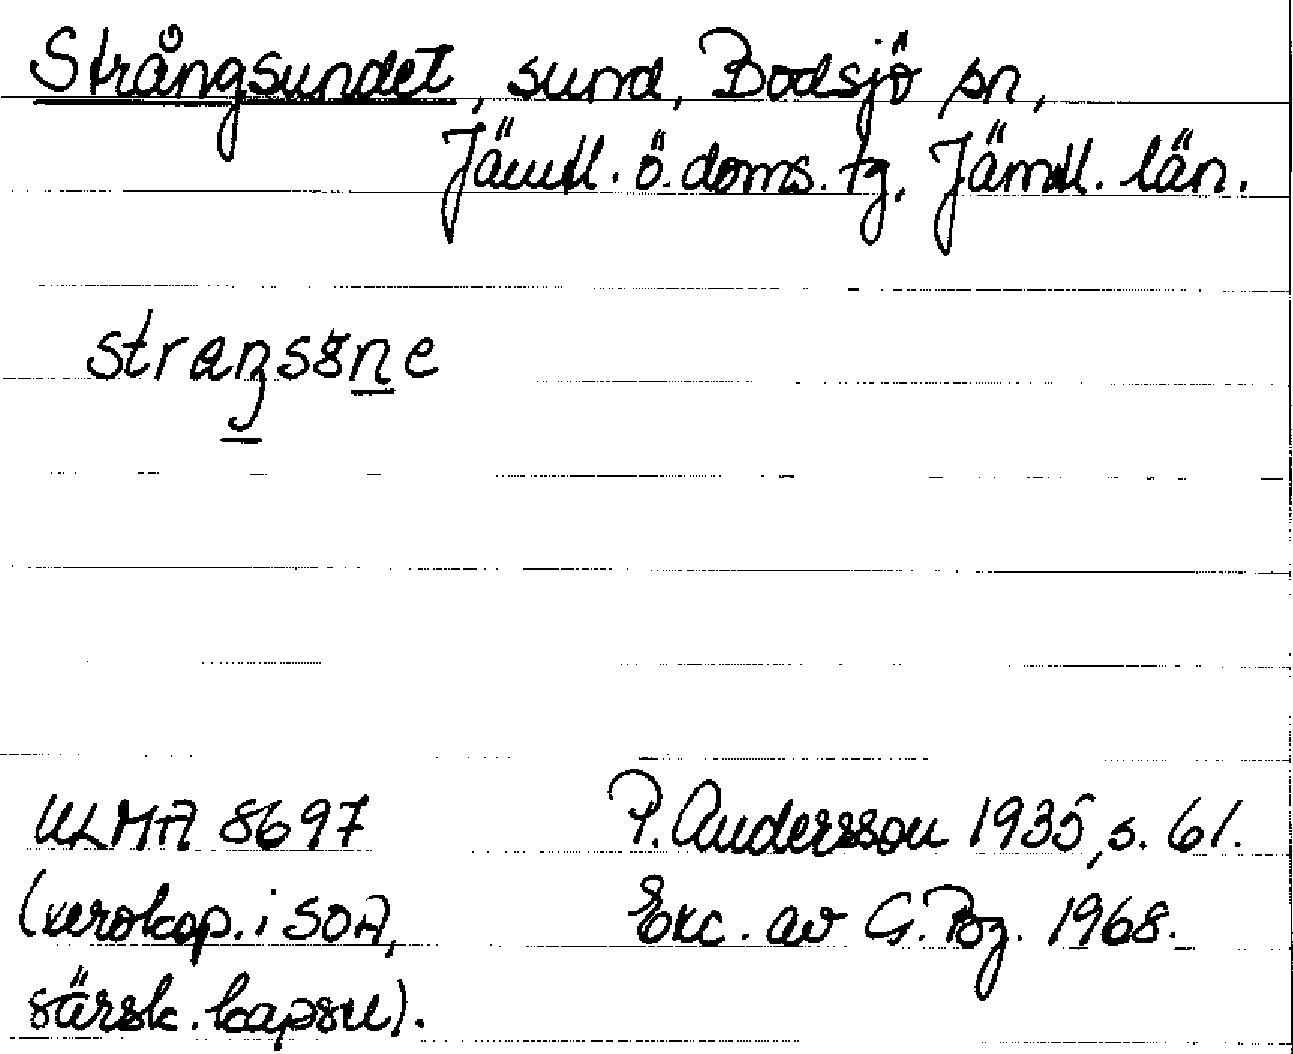 Strångsundet, sund, Bodsjö sn,
Jämtl. ö. doms. tg. Jämtl. län.
ULMA 8697
(xerokop. i SOA,
särsk. kapsel).
P. Andersson 1935, s. 61.
Exc. av G. Bg. 1968.